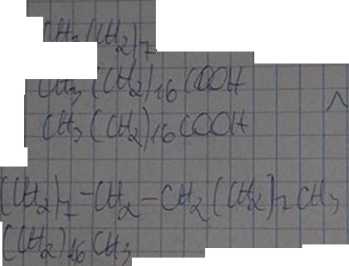 CH3(CH2)7
CH3(CH2)16COOH
CH3(CH2)16COOH
(CH2)7-CH2-CH2(CH2)7CH3
(CH2)16CH3